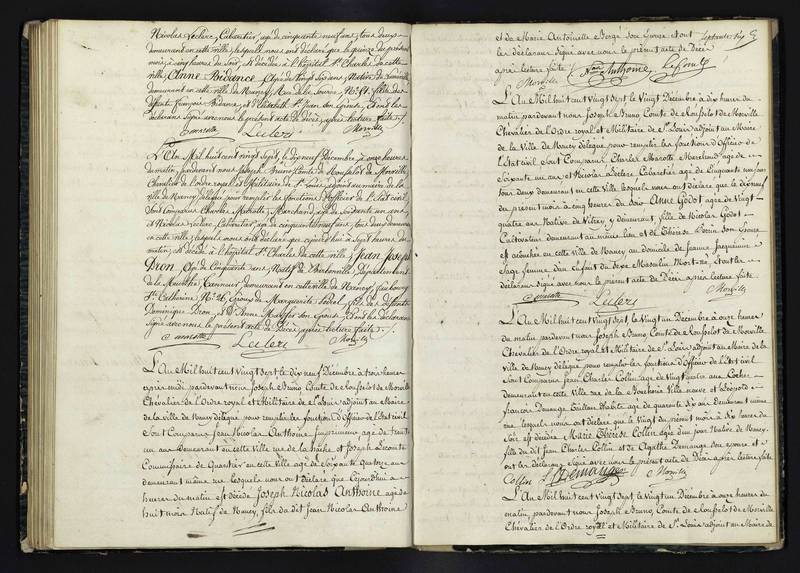 Nicolas Leclerc, Cabaretier, agé de cinquante neuf ans, tous deux
demeurant en cette ville, lesquels nous ont déclaré que le quinze du présent
mois, à cinq heures du soir, est décédée à l'hôpital St. Charles de cette
ville, Anne Bidence, agée de vingt six ans, Native de Lunéville
demeurant en cette ville de Nancy, Rue de la Source, No. 51, fille des
défunts François Bidence, et Elizabeth St. Jean son épouse, Et ont les
déclarans Signé avec nous le présent acte de décès, après lecture faite./.
C marcotte Leclerc Morville
L'An Mil huit cent vingt Sept, le dix neuf Décembre, à onze heures
du matin, pardevant nous Joseph Bruno Comte de Rousselot de Morville,
Chevalier de l'ordre royal et Militaire de St. Louis, adjoint au maire de la
ville de Nancy, délégué pour remplir les fonctions d'officier de l'état civil,
Sont Comparus Charles Marcotte, Marchand, agé de Soixante un ans,
et Nicolas Leclerc, Cabaretier, agé de cinquante neuf ans, tous deux demeurant
en cette ville, lesquels nous ont déclaré que cejourd'hui à Sept heures du
matin, est décédé à l'hôpital St. Charles de cette ville, Jean Joseph
Dron, agé de Cinquante ans, Natif de département
de la Meurthe, Tanneur, demeurant en cette ville de Nancy, faubourg
Ste. Catherine No. 26, époux de Marguerite fils de défunts
Dominique Dron, et d'Anne son épouse, Et ont les déclarans
Signé avec nous le présent acte de décès, après lecture faite./.
C marcotte Leclerc Morville
L'An Mil huit cent vingt Sept le dix neuf Décembre à trois heures
après midi pardevant nous Joseph Bruno Comte de Rousselot de Morville
Chevalier de l'Ordre royal et Militaire de St. Louis adjoint au Maire
de la ville de Nancy délégué pour remplir les fonctions d'Officier de l'Etat civil
Sont Comparus Jean Nicolas Anthoine Imprimeur agé de trente
un ans Demeurant en cette ville rue de la hache et Joseph Lecomte
Commissaire de Quartier en cette ville agé de Soixante quatre ans
demeurant même rue lesquels nous ont déclaré que cejourd'hui à
heures du matin est décédé Joseph Nicolas Anthoine agé de
huit mois Natif de Nancy, fils du dit Jean Nicolas Anthoine
et de Marie Antoinette Bergé son épouse et ont
les déclarans Signé avec nous le présent acte de Décès
après lecture faite
Morville Nas Anthoine Lecomte
L'An Mil huit cent Vingt Sept le Vingt Décembre à dix heures du
matin pardevant nous Joseph Bruno, Comte de Rousselot de Morville
Chevalier de l'Ordre royal et Militaire de St. Louis adjoint au Maire
de la Ville de Nancy délégué pour remplir les fonctions d'Officier de
l'Etat civil Sont Comparus Charles Marcotte Marchand agé de
Soixante un ans et Nicolas Leclerc Cabaretier agé de Cinquante neuf ans
tous deux demeurant en cette Ville lesquels nous ont déclaré que le dix neuf
du présent mois à cinq heures du Soir Anne Godot agée de Vingt
quatre ans Native de Vitrey y demeurant, fille de Nicolas Godot
Cultivateur demeurant au même lieu et de Thérèse son épouse
est accouchée en cette ville de Nancy au domicile de Jeanne Jacquemin
Sage femme d'un Enfant du Sexe Masculin Mort-né, et ont les
déclarans Signé avec nous le présent acte de Décès après lecture faite
C marcotte Leclerc Morville
L'An Mil huit cent Vingt Sept le Vingt un Décembre à onze heures
du matin pardevant nous Joseph Bruno, Comte de Rousselot de Morville
Chevalier de l'Ordre royal et Militaire de St. Louis adjoint au Maire de la
Ville de Nancy délégué pour remplir les fonctions d'Officier de l'Etat civil
Sont Comparus Jean Charles Collin, agé de Vingt quatre ans Cocher
demeurant en cette Ville rue de la Boucherie Ville neuve et Léopold
françois Demange Guillaume agé de quarante Six ans demeurant même
rue lesquels nous ont déclaré que le Vingt du présent mois à dix heures du
Soir est décédée Marie Thérèse Collin agée d'un jour Native de Nancy
fille du dit Jean Charles Collin et de Agathe Demange son épouse et
ont les déclarans Signé avec nous le présent acte de Décès après lecture faite
Collin Demange Morville
L'An Mil huit cent Vingt Sept le Vingt un Décembre à onze heures du
matin, pardevant nous Joseph Bruno, Comte de Rousselot de Morville
Chevalier de l'Ordre royal et Militaire de St. Louis adjoint au Maire de